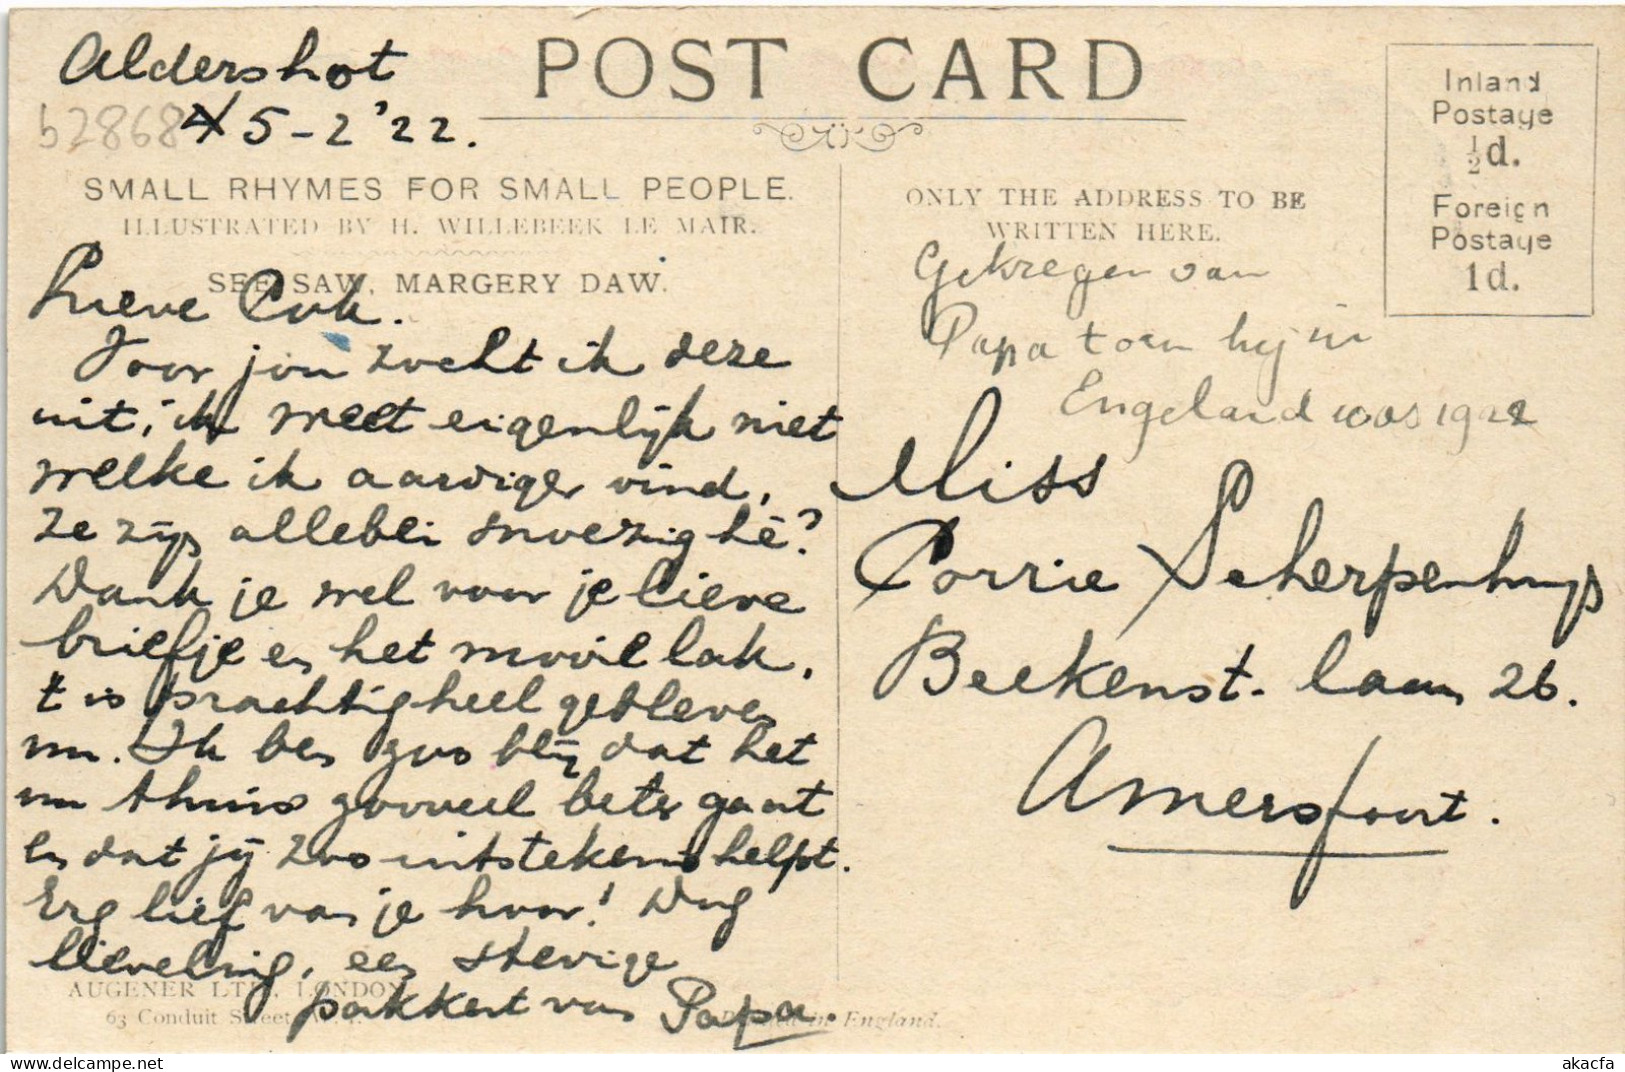 Aldershot
b28684 5-2 '22.
POST CARD
Inland
Postage
½d.
Foreign
Postage
1d.
SMALL RHYMES FOR SMALL PEOPLE.
ILLUSTRATED BY H. WILLEBEEK LE MAIR.
SEE SAW, MARGERY DAW.
Lieve Cok.
Voor jou zocht ik deze
uit, ik weet eigenlijk niet
welke ik aardiger vind,
ze zijn allebei snoezig hè?
Dank je wel voor je lieve
briefje en het mooie lak,
't is prachtig heel gebleven
nu. Ik ben zoo blij dat het
nu thuis zooveel beter gaat
en dat jij zoo uitstekend helpt.
Erg lief van je hoor! Dag
lieveling, een stevige
pakkert van Papa.
AUGENER LTD. LONDON
63 Conduit Street, W. 1.
Printed in England.
ONLY THE ADDRESS TO BE
WRITTEN HERE.
Gekregen van
Papa toen hij in
Engeland was 1922
Miss
Corrie Scherpenhuijs
Beekenst. laan 26.
Amersfoort.
akacfa